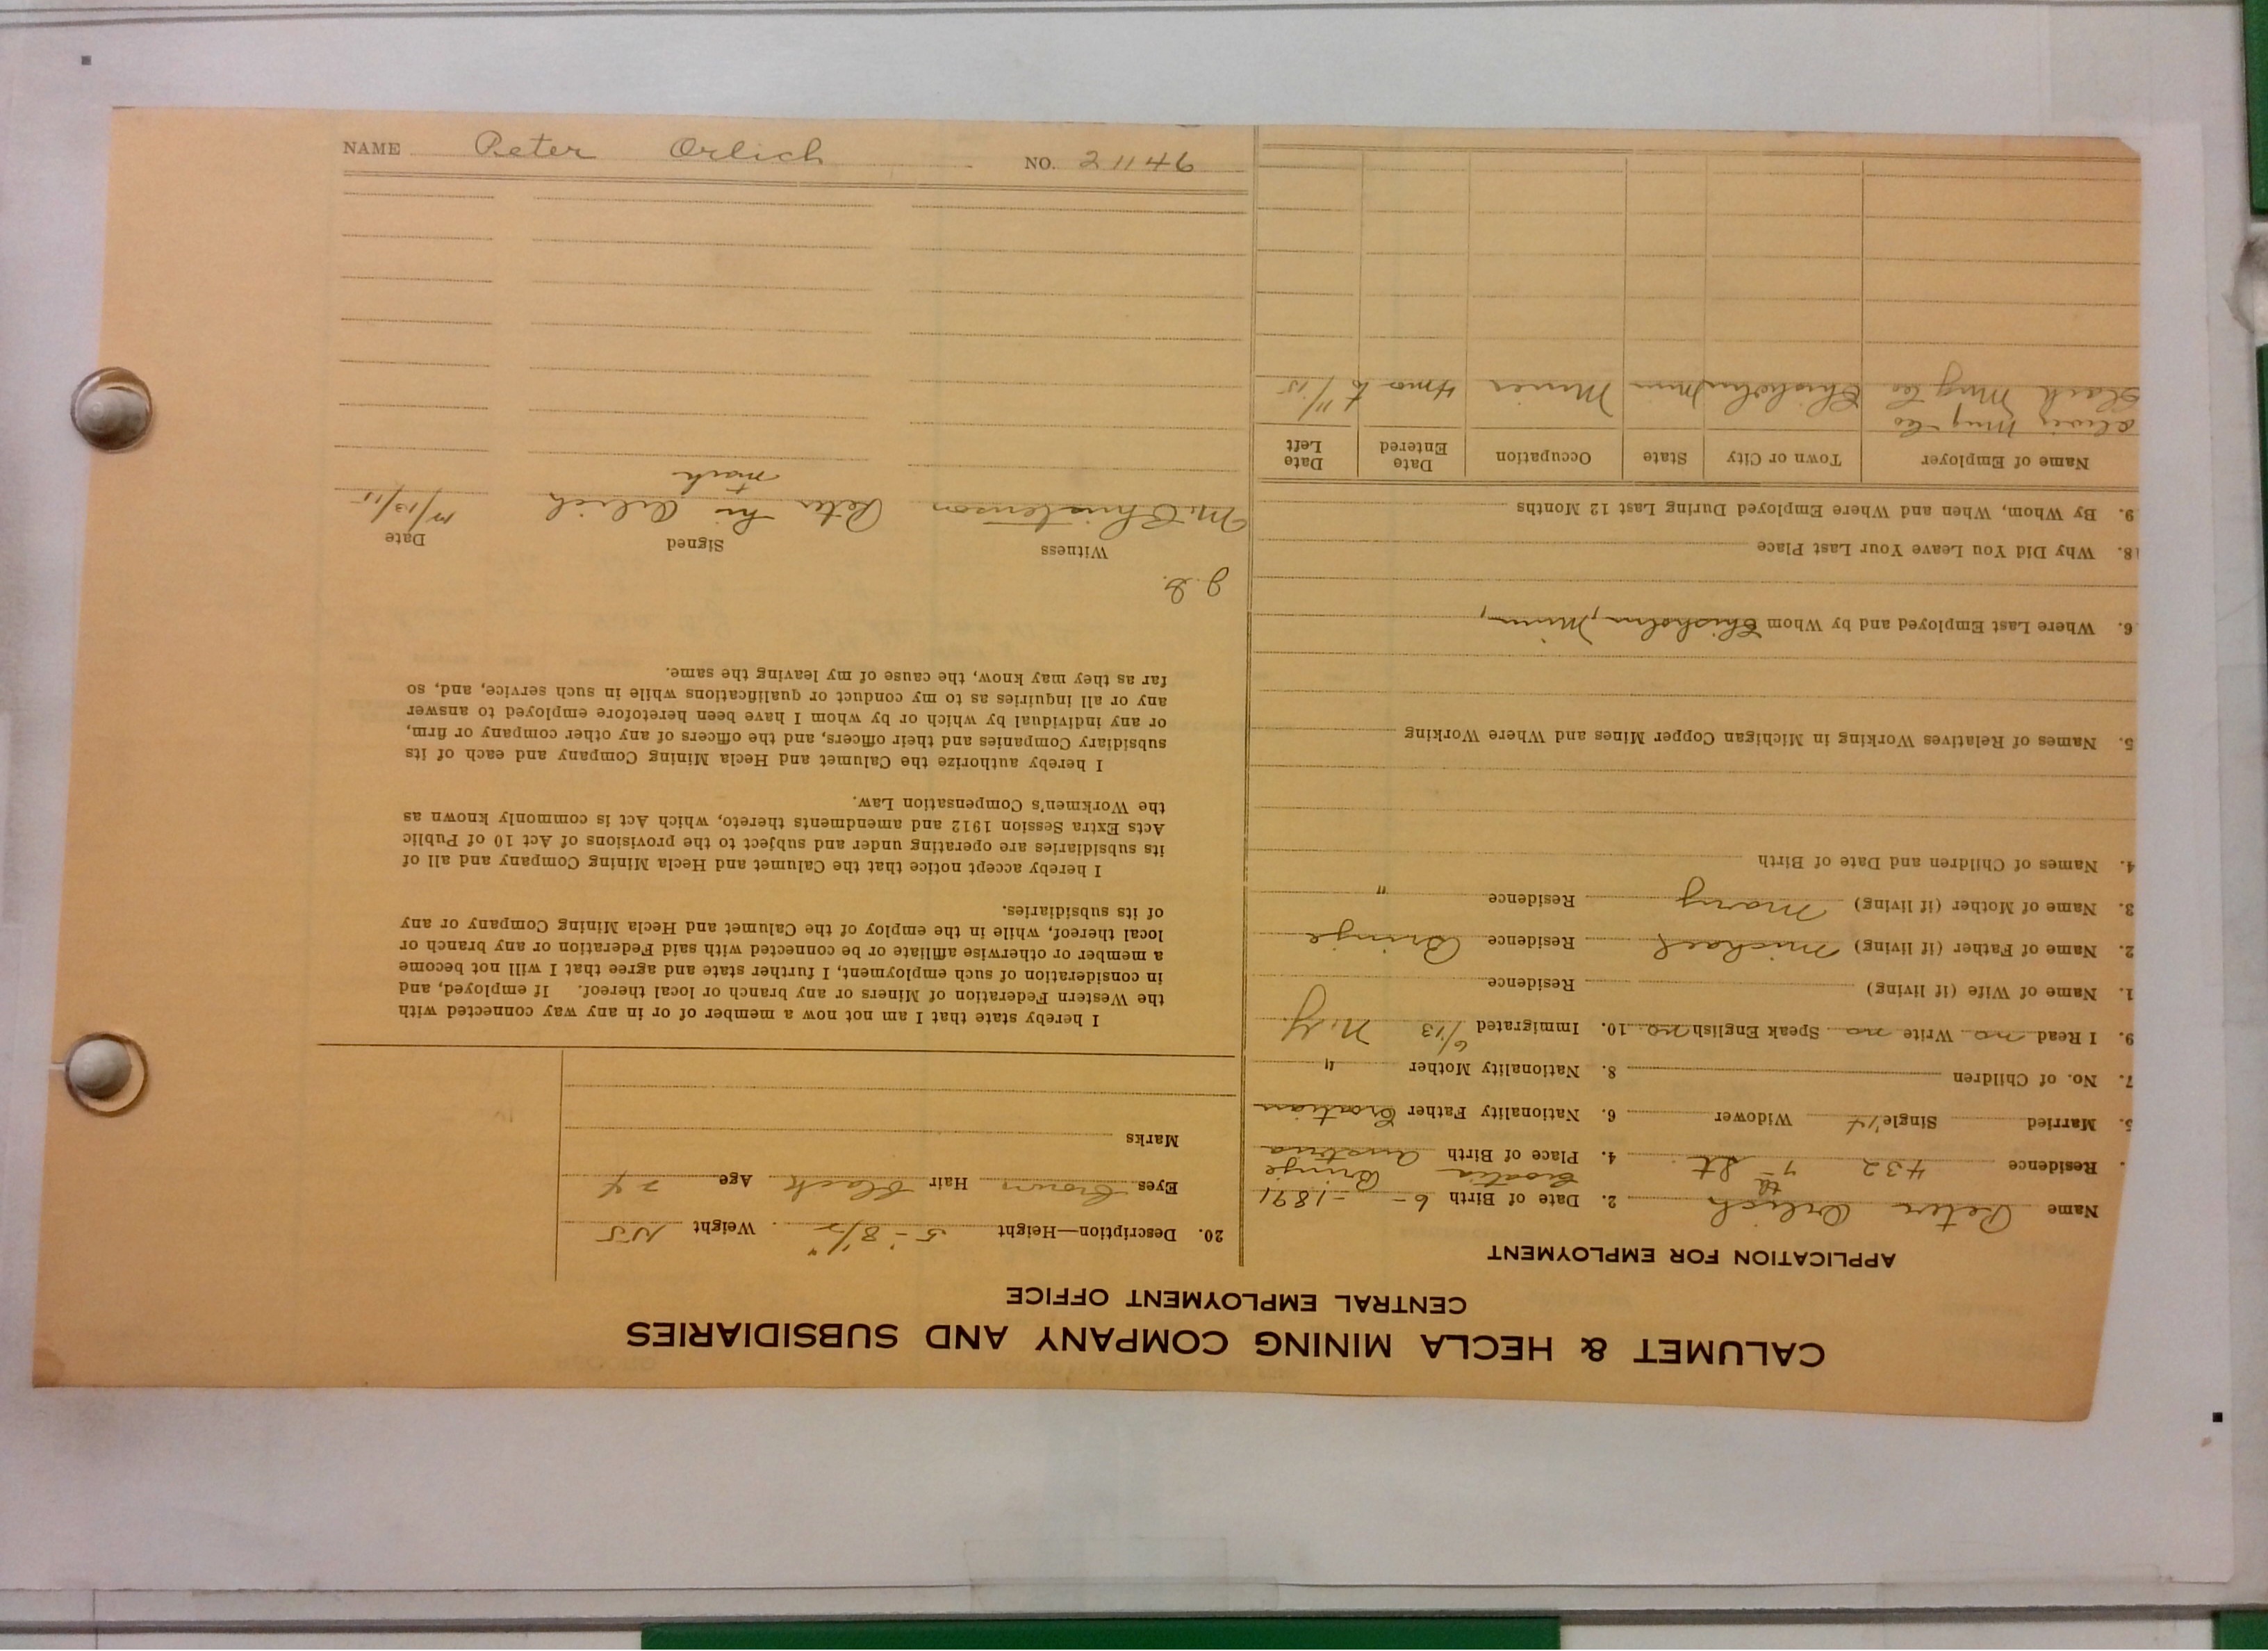 NAME Peter Orlich NO. 21146
CALUMET & HECLA MINING COMPANY AND SUBSIDIARIES
CENTRAL EMPLOYMENT OFFICE
APPLICATION FOR EMPLOYMENT
Name Peter Orlich 2. Date of Birth 6 - - 1891
Residence 432 7th St 4. Place of Birth Croatia Brinje Austria
5. Married Single Widower 6. Nationality Father Croatian
7. No. of Children 8. Nationality Mother "
9. I Read no Write no Speak English no 10. Immigrated 6/13 N.Y.
1. Name of Wife (if living) Residence
2. Name of Father (if living) Michael Residence Brinje
3. Name of Mother (if living) Mary Residence "
4. Names of Children and Date of Birth
5. Names of Relatives Working in Michigan Copper Mines and Where Working
6. Where Last Employed and by Whom Chisholm, Minn,
18. Why Did You Leave Your Last Place
9. By Whom, When and Where Employed During Last 12 Months
Name of Employer Town or City State Occupation Date Entered Date Left
Oliver Mng Co
Mng Co Chisholm Minn Miner 4 mos to 11/15
20. Description—Height 5'-8 1/2" Weight 155
Eyes Brown Hair Black Age 24
Marks
I hereby state that I am not now a member of or in any way connected with
the Western Federation of Miners or any branch or local thereof. If employed, and
in consideration of such employment, I further state and agree that I will not become
a member or otherwise affiliate or be connected with said Federation or any branch or
local thereof, while in the employ of the Calumet and Hecla Mining Company or any
of its subsidiaries.
I hereby accept notice that the Calumet and Hecla Mining Company and all of
its subsidiaries are operating under and subject to the provisions of Act 10 of Public
Acts Extra Session 1912 and amendments thereto, which Act is commonly known as
the Workmen's Compensation Law.
I hereby authorize the Calumet and Hecla Mining Company and each of its
subsidiary Companies and their officers, and the officers of any other company or firm,
or any individual by which or by whom I have been heretofore employed to answer
any or all inquiries as to my conduct or qualifications while in such service, and, so
far as they may know, the cause of my leaving the same.
Witness Signed Date
M. Christenson Peter his Orlich
mark